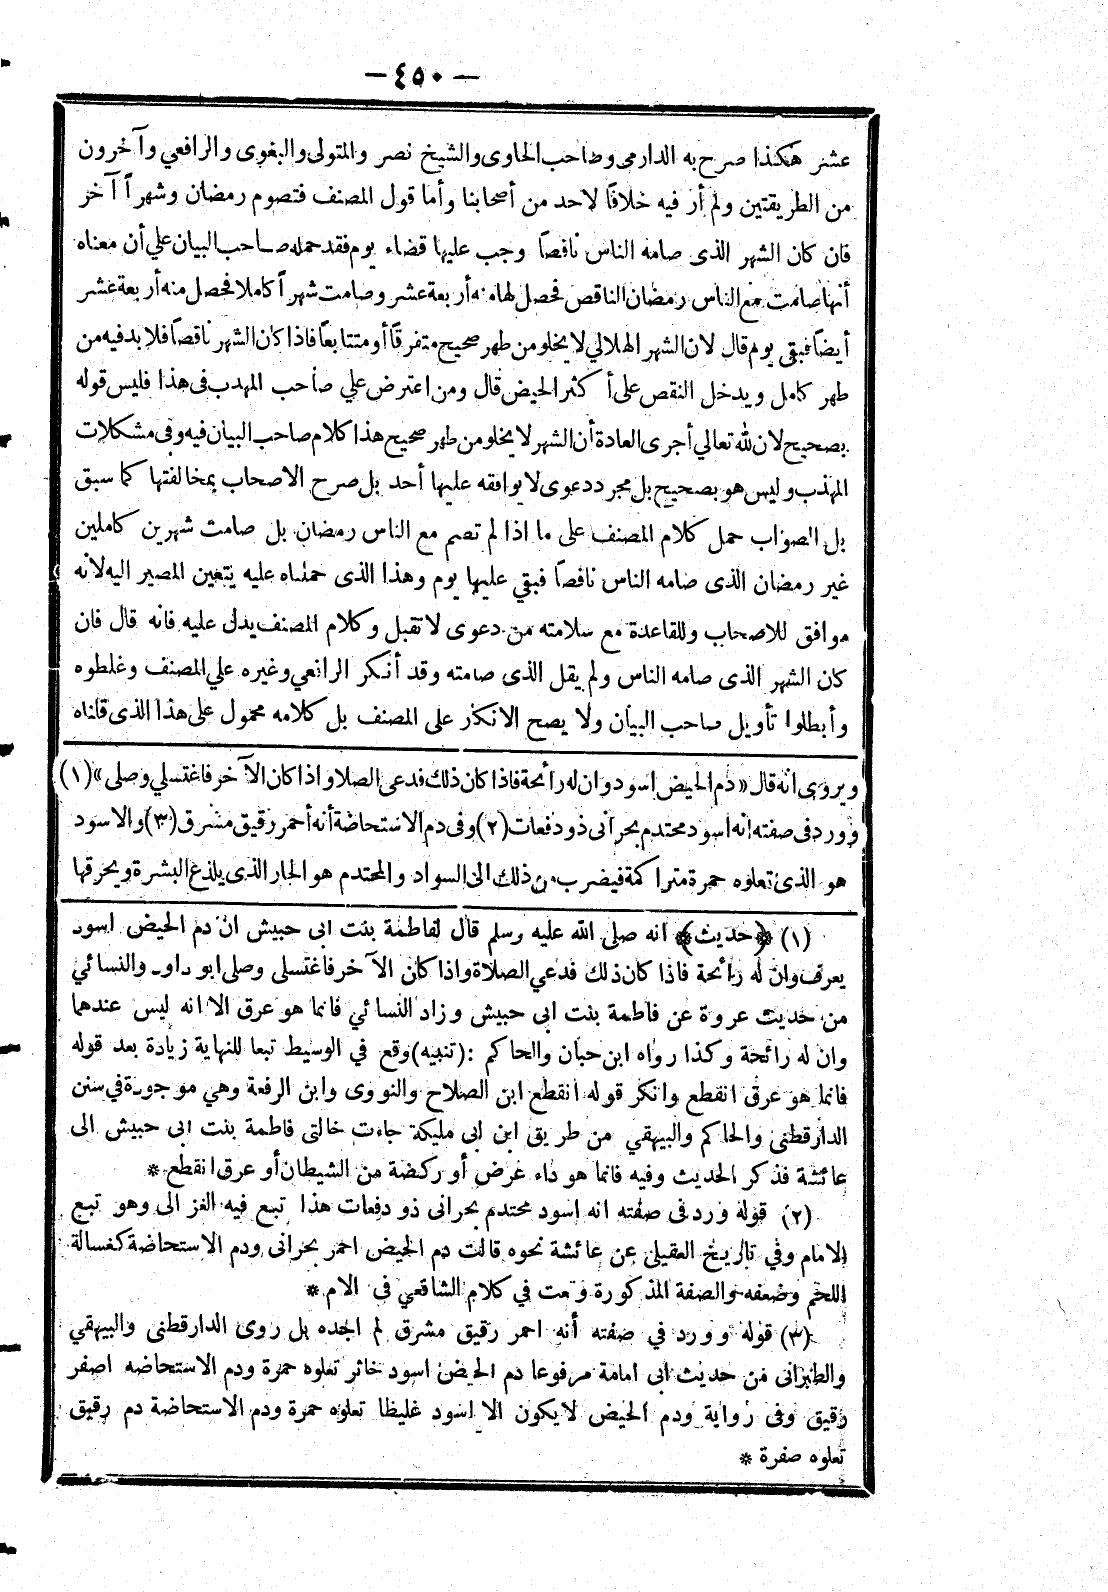 — ٤٥٠ —
عشر هكذا صرح به الدارمى وصاحب الحاوى والشيخ نصر والمتولى والبغوى والرافعي وآخرون
من الطريقتين ولم أر فيه خلافًا لاحد من أصحابنا وأما قول المصنف فتصوم رمضان وشهراً آخر
فان كان الشهر الذى صامه الناس ناقصًا وجب عليها قضاء يوم فقد حمله صاحب البيان علي أن معناه
أنها صامت مع الناس رمضان الناقص فحصل لها منه أربعة عشر وصامت شهراً كاملا فحصل منه أربعة عشر
أيضًا فبقى يوم قال لان الشهر الهلالي لا يخلو من طهر صحيح متفرقًا أو متتابعًا فاذا كان الشهر ناقصًا فلا بد فيه من
طهر كامل ويدخل النقص على أكثر الحيض قال ومن اعترض علي صاحب المهذب فى هذا فليس قوله
بصحيح لان لله تعالي أجرى العادة أن الشهر لا يخلو من طهر صحيح هذا كلام صاحب البيان فيه وفى مشكلات
المهذب وليس هو بصحيح بل مجرد دعوى لا يوافقه عليها أحد بل صرح الاصحاب بمخالفتها كما سبق
بل الصواب حمل كلام المصنف على ما اذا لم تصم مع الناس رمضان بل صامت شهرين كاملين
غير رمضان الذى صامه الناس ناقصًا فبقي عليها يوم وهذا الذى حملناه عليه يتعين المصير اليه لانه
موافق للاصحاب وللقاعدة مع سلامته من دعوى لا تقبل وكلام المصنف يدل عليه فانه قال فان
كان الشهر الذى صامه الناس ولم يقل الذى صامته وقد أنكر الرافعي وغيره علي المصنف وغلطوه
وأبطلوا تأويل صاحب البيان ولا يصح الانكار على المصنف بل كلامه محمول على هذا الذى قلناه
ويروى انه قال «دم الحيض اسود وان له رائحة فاذا كان ذلك فدعى الصلا واذا كان الآخر فاغتسلي وصلى» (١)
وورد فى صفته انه اسود محتدم بحرانى ذو دفعات (٢) وفى دم الاستحاضة أنه أحمر رقيق مشرق (٣) والاسود
هو الذى تعلوه حمرة متراكمة فيضرب من ذلك الى السواد والمحتدم هو الحار الذى يلذع البشرة ويحرقها
(١) ﴿حديث﴾ انه صلى الله عليه وسلم قال لفاطمة بنت ابى حبيش ان دم الحيض اسود
يعرف وان له رائحة فاذا كان ذلك فدعي الصلاة واذا كان الآخر فاغتسلى وصلى ابو داود والنسائي
من حديث عروة عن فاطمة بنت ابى حبيش وزاد النسائي فانما هو عرق الا انه ليس عندهما
وان له رائحة وكذا رواه ابن حبان والحاكم : (تنبيه) وقع في الوسيط تبعا للنهاية زيادة بعد قوله
فانما هو عرق انقطع وانكر قوله انقطع ابن الصلاح والنووى وابن الرفعة وهي موجودة في سنن
الدارقطنى والحاكم والبيهقي من طريق ابن ابى مليكة جاءت خالتى فاطمة بنت ابى حبيش الى
عائشة فذكر الحديث وفيه فانما هو داء عرض أو ركضة من الشيطان أو عرق انقطع *
(٢) قوله ورد فى صفته انه اسود محتدم بحرانى ذو دفعات هذا تبع فيه الغزالى وهو تبع
الامام وفي تاريخ العقيلى عن عائشة نحوه قالت دم الحيض احمر بحرانى ودم الاستحاضة كغسالة
اللحم وضعفه والصفة المذكورة وقعت في كلام الشافعي فى الام *
(٣) قوله وورد في صفته أنه احمر رقيق مشرق لم اجده بل روى الدارقطنى والبيهقي
والطبرانى من حديث ابى امامة مرفوعا دم الحيض اسود خاثر تعلوه حمرة ودم الاستحاضه اصفر
رقيق وفى رواية ودم الحيض لا يكون الا اسود غليظا تعلوه حمرة ودم الاستحاضة دم رقيق
تعلوه صفرة *